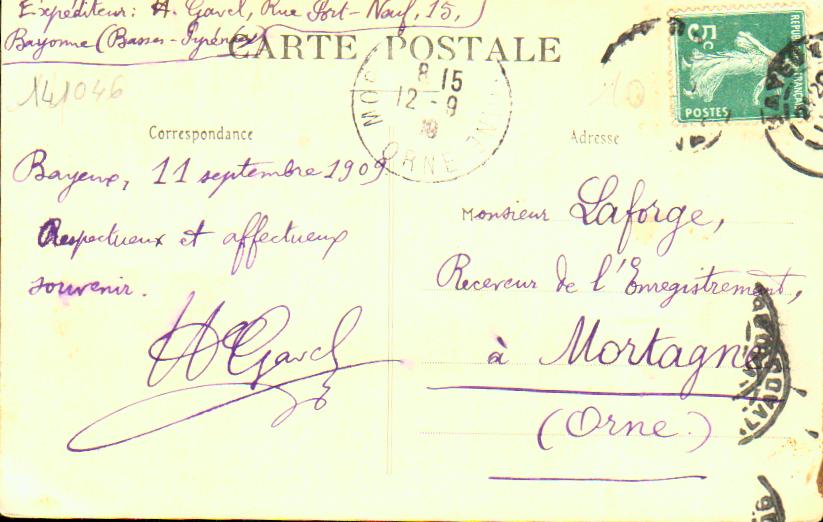 Expéditeur: H. Gavel, Rue Port-Neuf, 15,
Bayonne (Basses-Pyrénées)
CARTE POSTALE
141046
8 15
12 - 9
ORNE
5c
REPUBLIQUE FRANÇAISE
POSTES
Correspondance
Adresse
Bayeux, 11 septembre 1909
Respectueux et affectueux
souvenir.
H Gavel
Monsieur Laforge,
Receveur de l'Enregistrement,
à Mortagne
(Orne.)